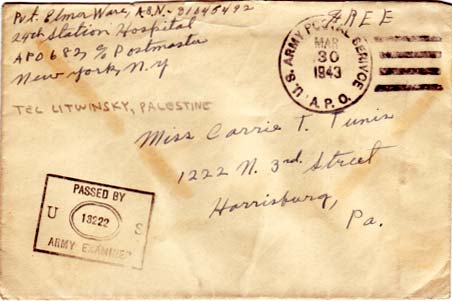 Pvt. Elmer Ware, ASN-31345492
24th Station Hospital
APO 682, c/o Postmaster
New York, N.Y
TEL LITWINSKY, PALESTINE
FREE
U.S. ARMY POSTAL SERVICE
MAR
30
1943
A.P.O.
Miss Carrie T. Tunis
1222 N. 3rd. Street
Harrisburg,
Pa.
PASSED BY
U 13222 S
ARMY EXAMINER